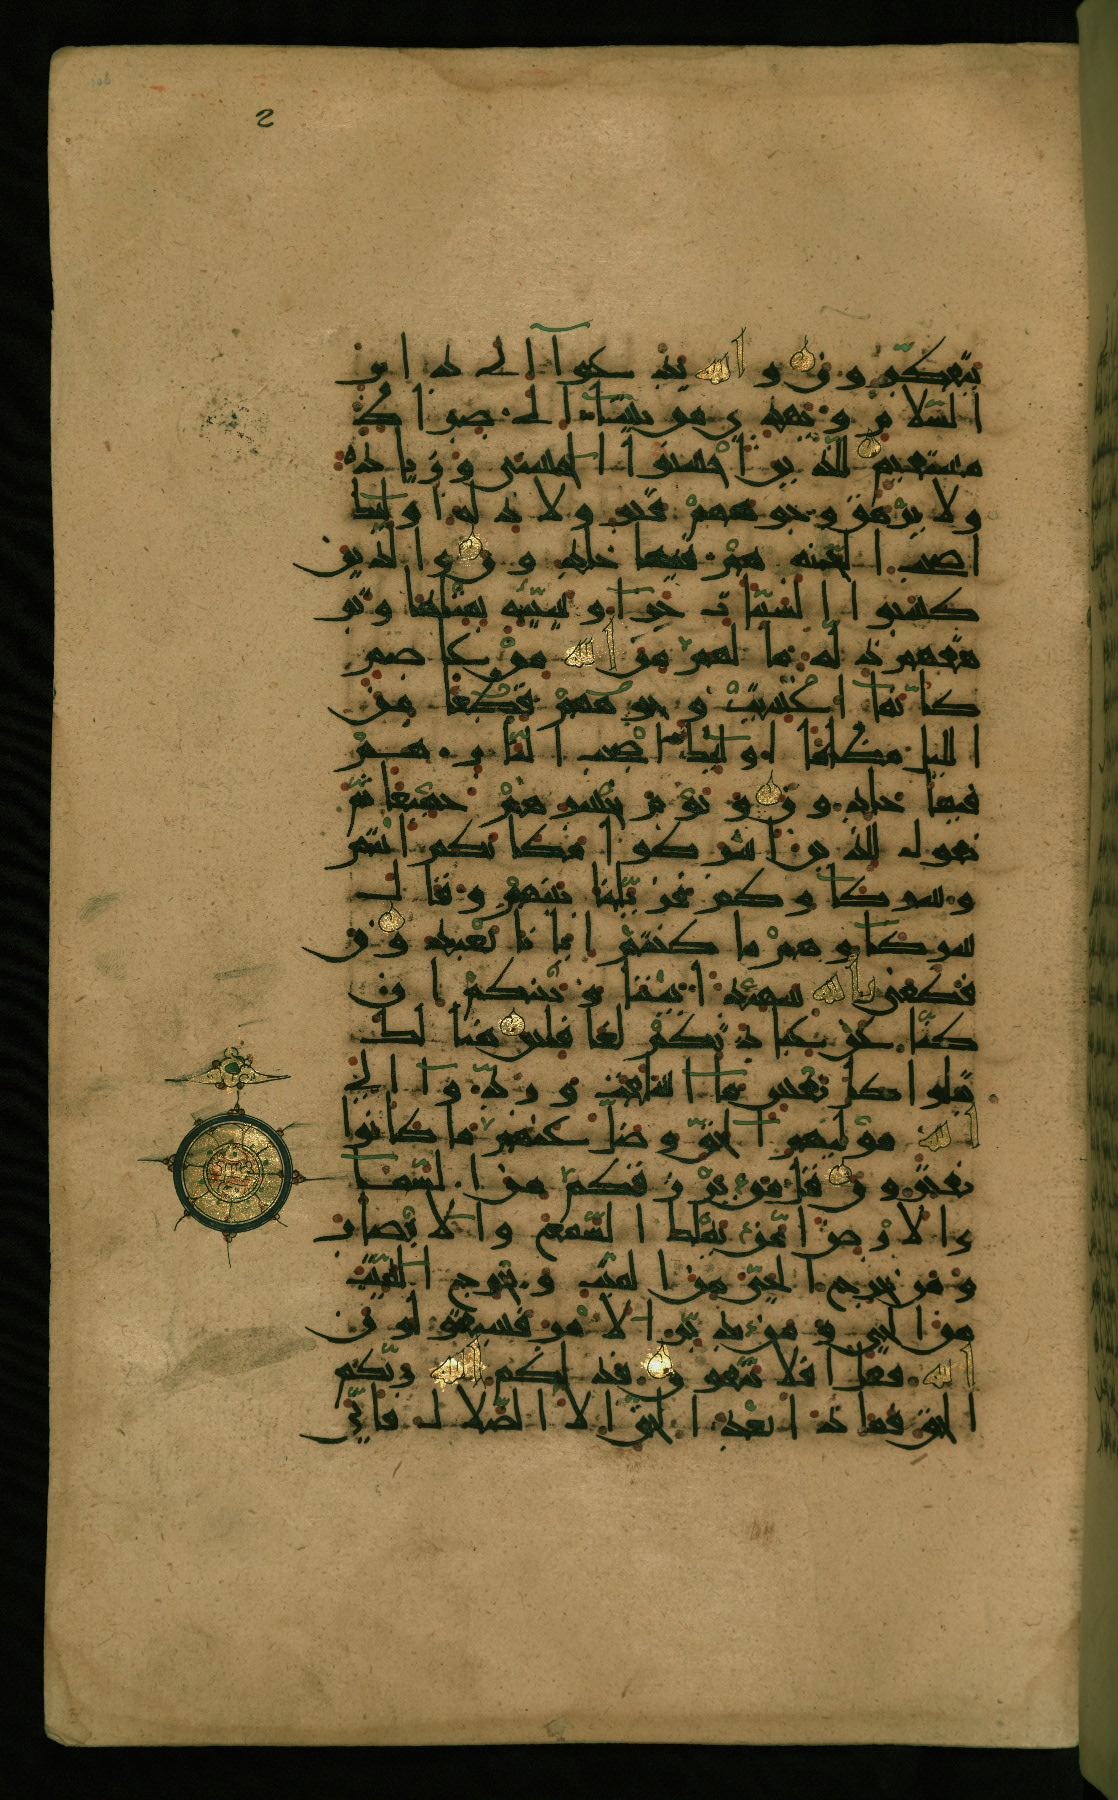 يتفكرون والله يدعوا الى دار
السلام ويهدى من يشاء الى صراط
مستقيم للذين احسنوا الحسنى وزيادة
ولا يرهق وجوههم قتر ولا ذلة اولئك
اصحب الجنة هم فيها خلدون والذين
كسبوا السيئات جزاء سيئة بمثلها وتر
هقهم ذلة ما لهم من الله من عاصم
كانما اغشيت وجوههم قطعا من
الليل مظلما اولئك اصحب النار هم
فيها خلدون ويوم نحشرهم جميعا ثم
نقول للذين اشركوا مكانكم انتم
وشركاوكم فزيلنا بينهم وقال
شركاوهم ما كنتم ايانا تعبدون
فكفى بالله شهيدا بيننا وبينكم ان
كنا عن عبادتكم لغافلين هنالك
تبلوا كل نفس ما اسلفت وردوا الى
الله موليهم الحق وضل عنهم ما كانوا
يفترون قل من يرزقكم من السما
ء والارض امن يملك السمع والابصار
ومن يخرج الحى من الميت ويخرج الميت
من الحى ومن يدبر الامر فسيقولون
الله فقل افلا تتقون فذلكم الله ربكم
الحق فماذا بعد الحق الا الضلال فانى